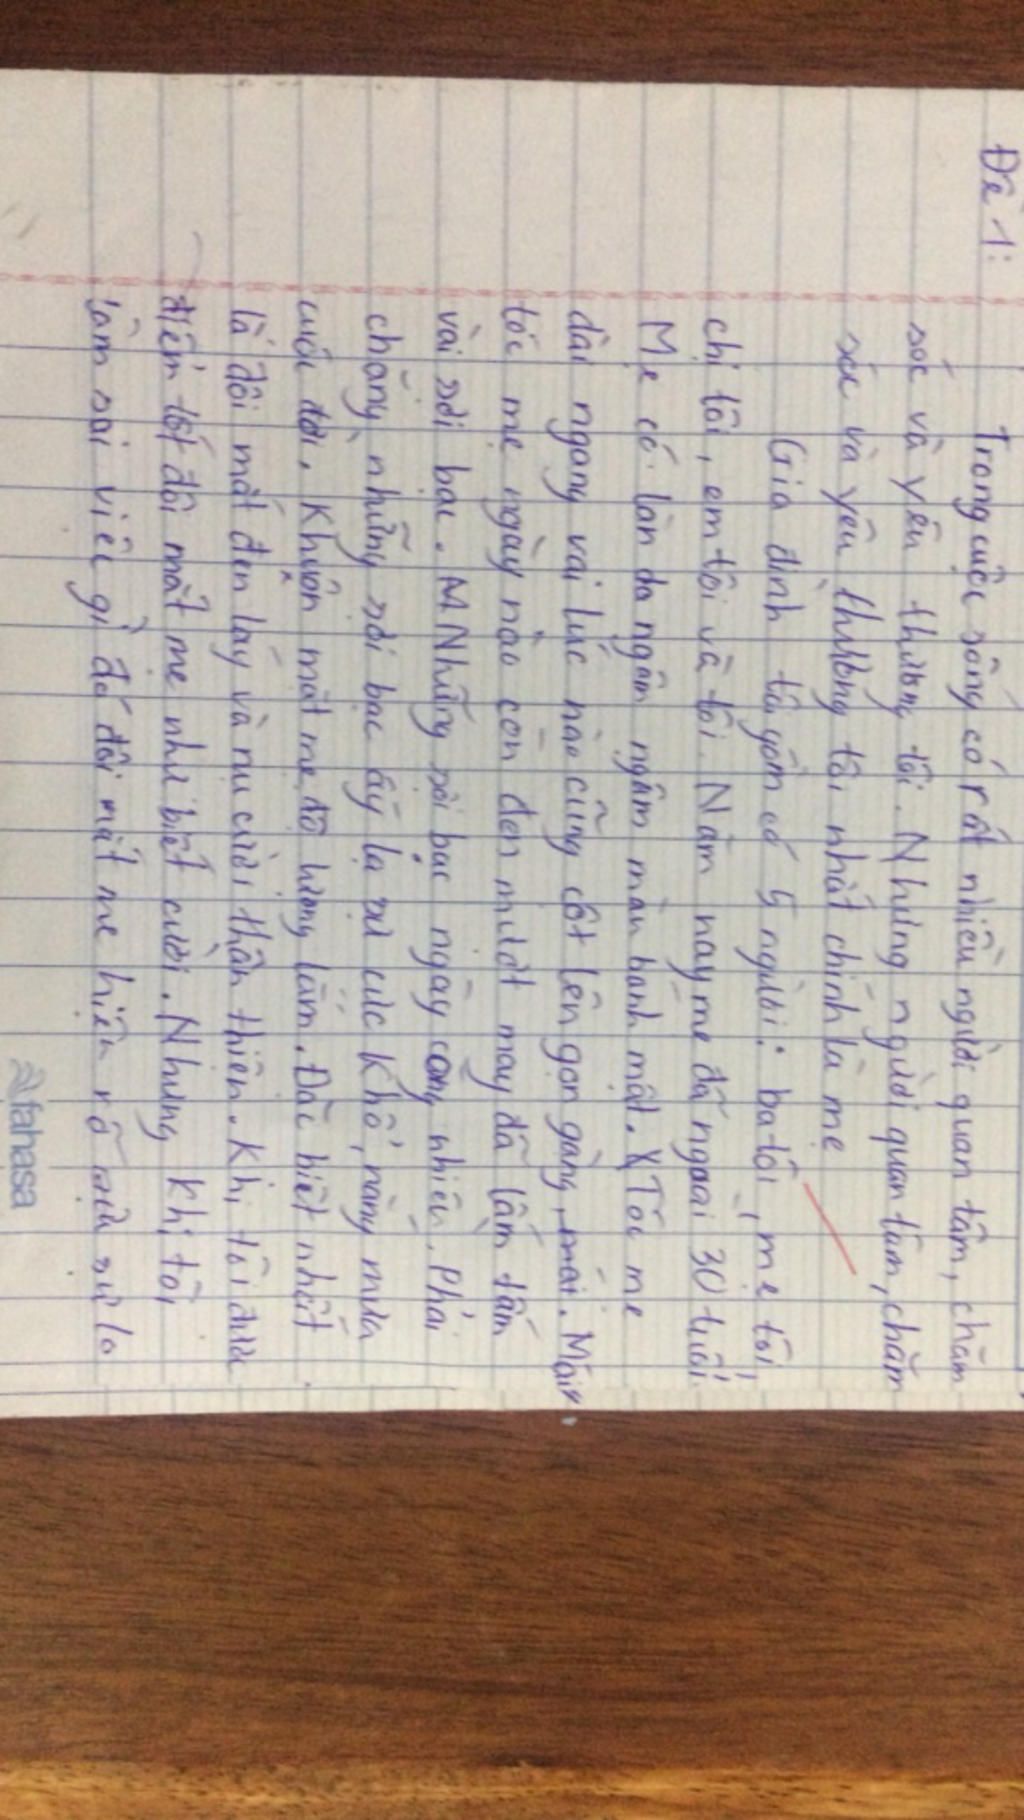 Đề 1:
Trong cuộc sống có rất nhiều người quan tâm, chăm
sóc và yêu thương tôi. Nhưng người quan tâm, chăm
sóc và yêu thương tôi nhất chính là mẹ
Gia đình tôi gồm có 5 người: ba tôi, mẹ tôi,
chị tôi, em tôi và tôi. Năm nay mẹ đã ngoài 30 tuổi.
Mẹ có làn da ngăm ngăm màu bánh mật. Tóc mẹ
dài ngang vai lúc nào cũng cột lên gọn gàng, mái. Mái
tóc mẹ ngày nào còn đen mượt may đã lấm tấm
vài sợi bạc. Những sợi bạc ngày càng nhiều. Phải
chăng những sợi bạc ấy là sự cực khổ, nắng mưa
cuộc đời. Khuôn mặt mẹ đỏ hồng lắm. Đặc biệt nhất
là đôi mắt đen láy và nụ cười thân thiện. Khi tôi được
điểm tốt đôi mắt mẹ như biết cười. Nhưng khi tôi
làm sai việc gì đó đôi mắt mẹ hiện rõ sự lo
fahasa